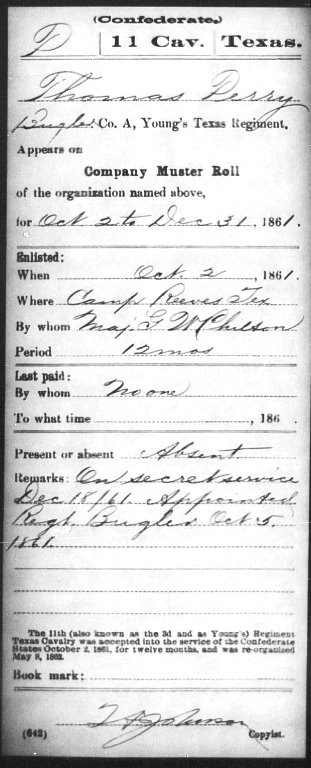 (Confederate.)
D | 11 Cav. | Texas.
Thomas Derry
Bugler, Co. A, Young's Texas Regiment.
Appears on
Company Muster Roll
of the organization named above,
for Oct 2 to Dec 31, 1861.
Enlisted:
When Oct. 2, 1861.
Where Camp Reeves Tex
By whom Maj. G W Chilson
Period 12 mos
Last paid:
By whom No one
To what time , 186 .
Present or absent Absent
Remarks: On secret service
Dec 18/61. Appointed
Regt. Bugler Oct 5.
1861.
The 11th (also known as the 3d and as Young's) Regiment
Texas Cavalry was accepted into the service of the Confederate
States October 2, 1861, for twelve months, and was re-organized
May 8, 1862.
Book mark:
Johnson
(642) Copyist.